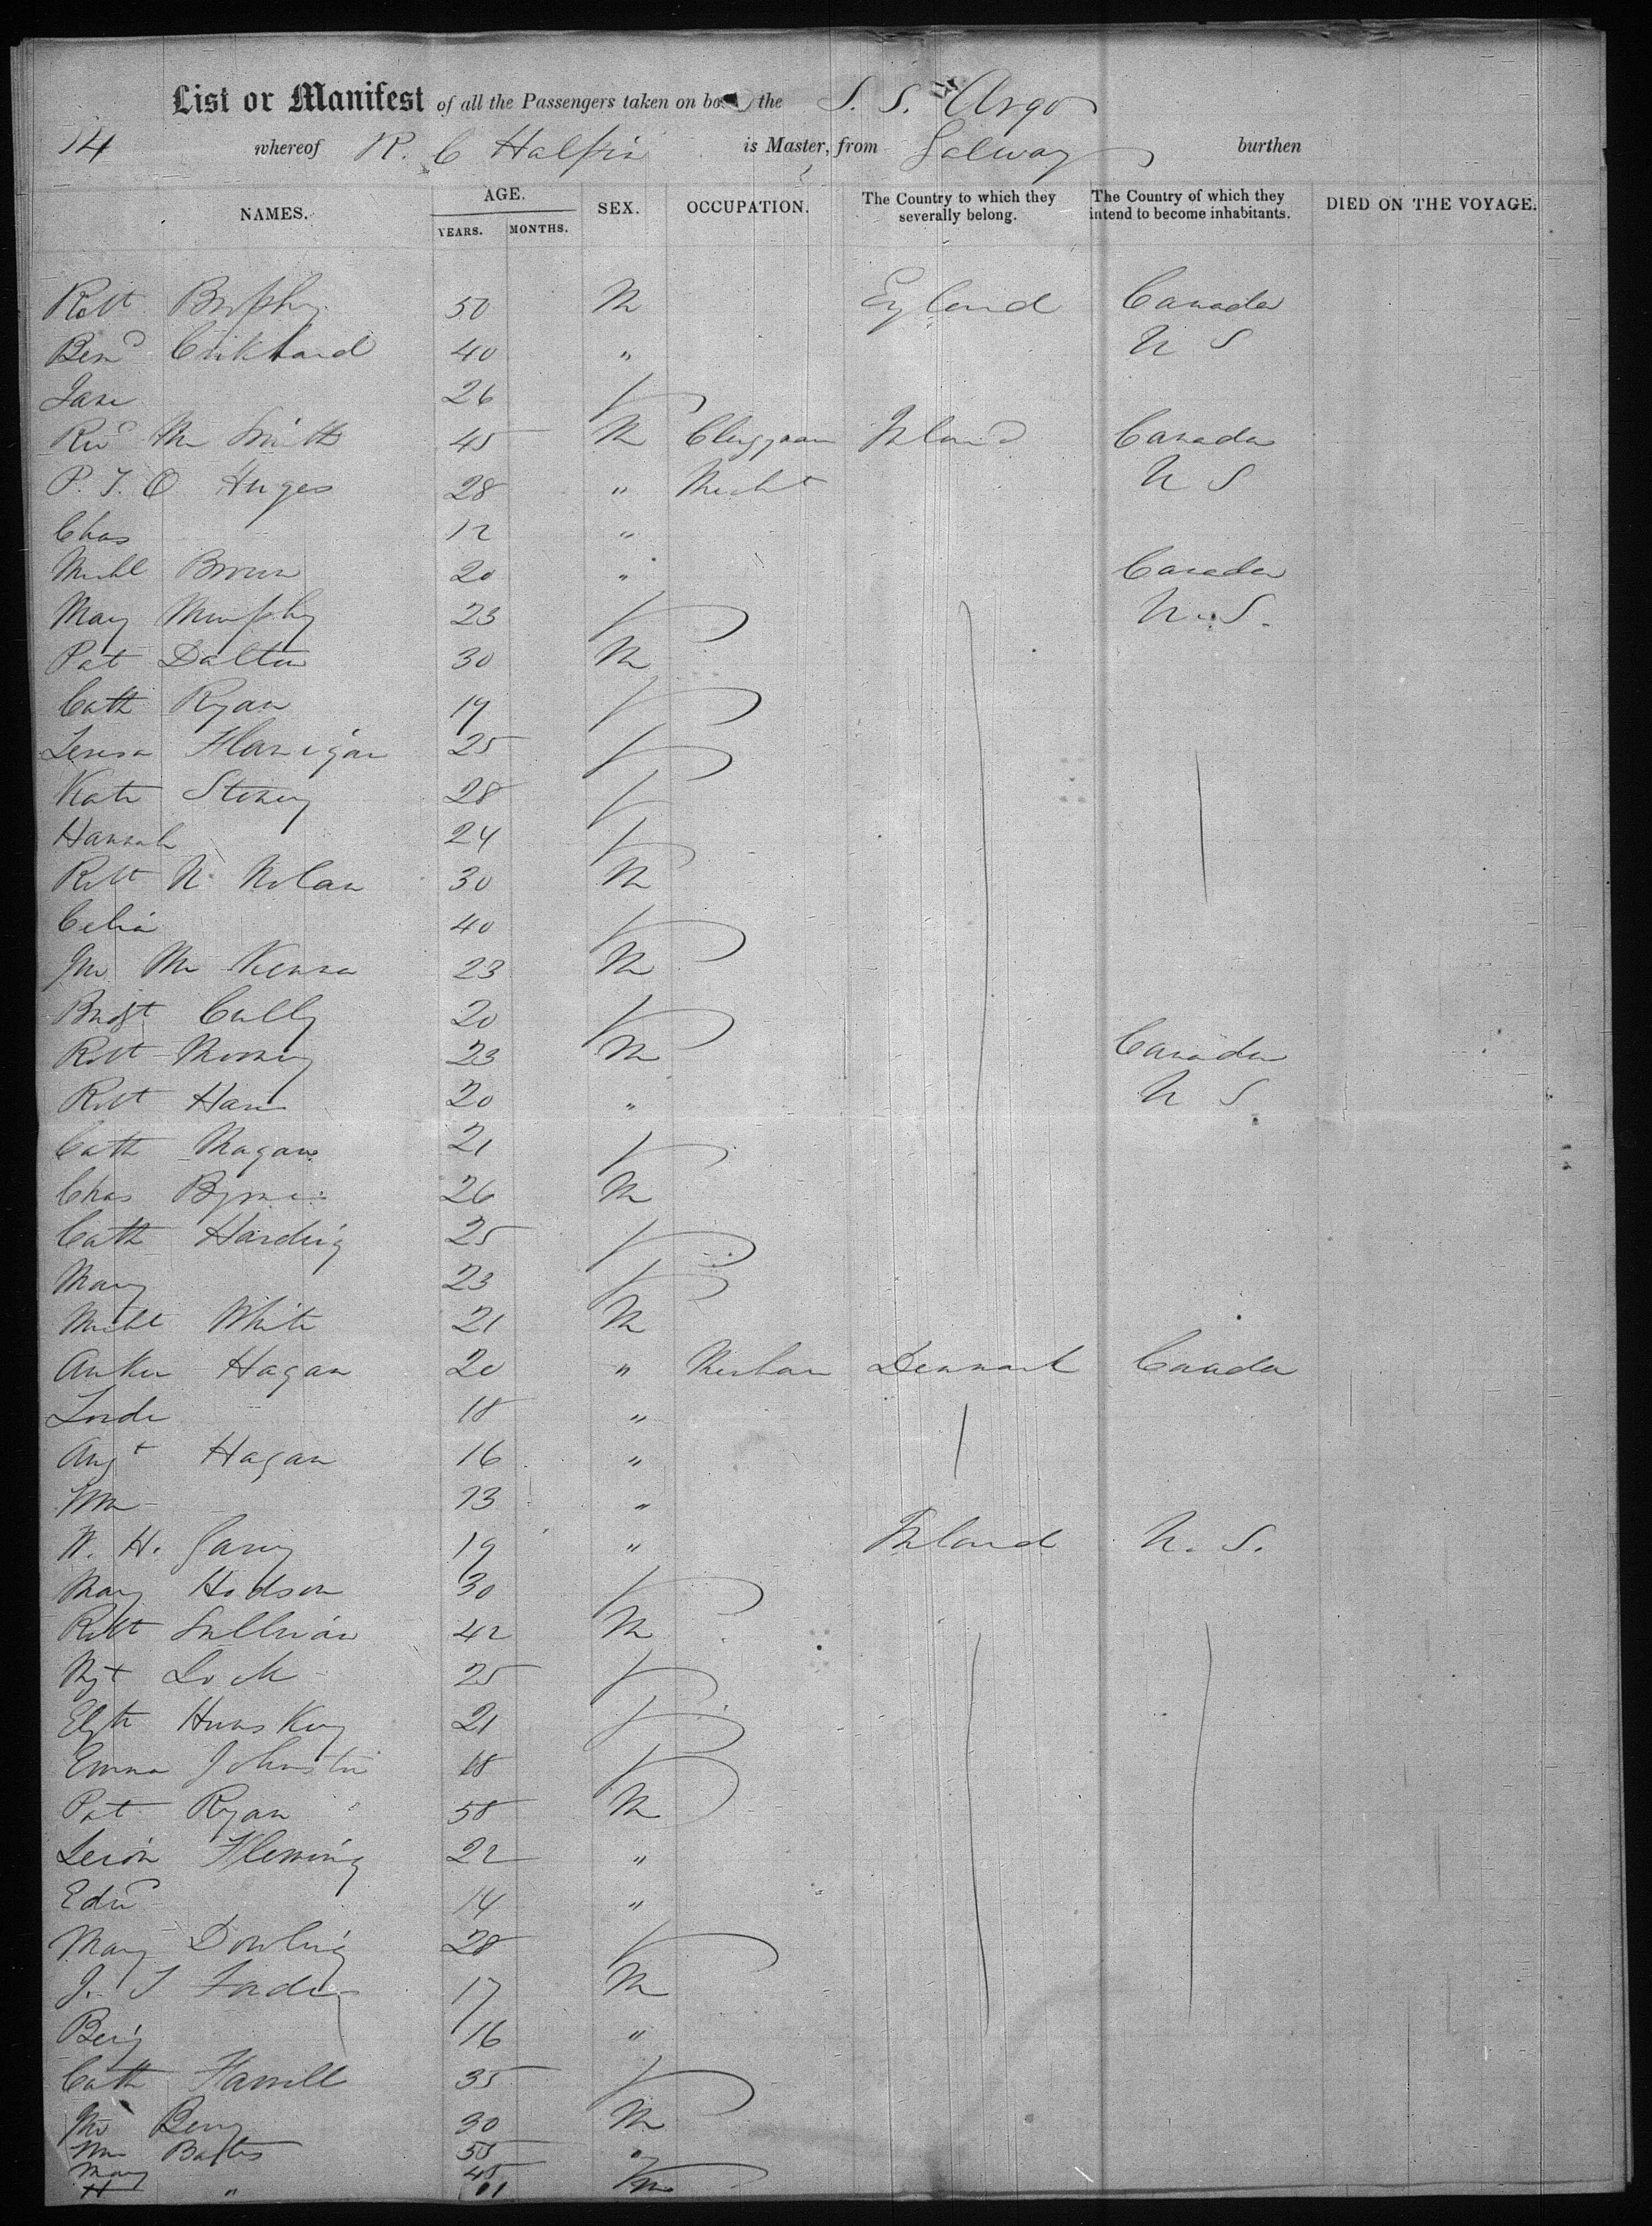 List or Manifest of all the Passengers taken on board the S. S. Argo
14 whereof R. C Halpin is Master, from Galway burthen
NAMES. AGE. YEARS. MONTHS. SEX. OCCUPATION. The Country to which they severally belong. The Country of which they intend to become inhabitants. DIED ON THE VOYAGE.
Robt Brophy 50 M England Canada
Benj 40 " U S
Jane 26 F
Revd Mr Smith 45 M Clergyman Ireland Canada
P. J. O Huges 28 " Mercht U S
Chas 12 "
Michl Brown 20 " Canada
Mary Murphy 23 F U. S.
Pat Dalton 30 M
Cath Ryan 19 F
Teresa Flanigan 25 F
Kate Stoney 28 F
Hannah 24 F
Robt N. Nolan 30 M
Celia 40 F
Jno Mc Kenna 23 M
Bridgt Cully 20 F
Robt Mooney 23 M Canada
Robt Hare 20 " U S
Cath Magan 21 F
Chas Byrne 26 M
Cath Harding 25 F
Mary 23 F
Michl White 21 M
Hagan 20 " Denmark Canada
18 "
Augt Hagan 16 "
Wm 13 "
W. H. Garvey 19 " Ireland U. S.
Mary Hodson 30 F
Robt Sullivan 42 M
Mgt Lock 25 F
Elzth 21 F
Emma Johnston 18 F
Pat Ryan 58 M
Fleming 22 "
Edwd 14 "
Mary Dowling 28 F
J. T 17 M
Benj 16 "
Cath Farrell 35 F
Jno Berry 30 M
Wm 55 "
Mary 45 F
H " 11 M